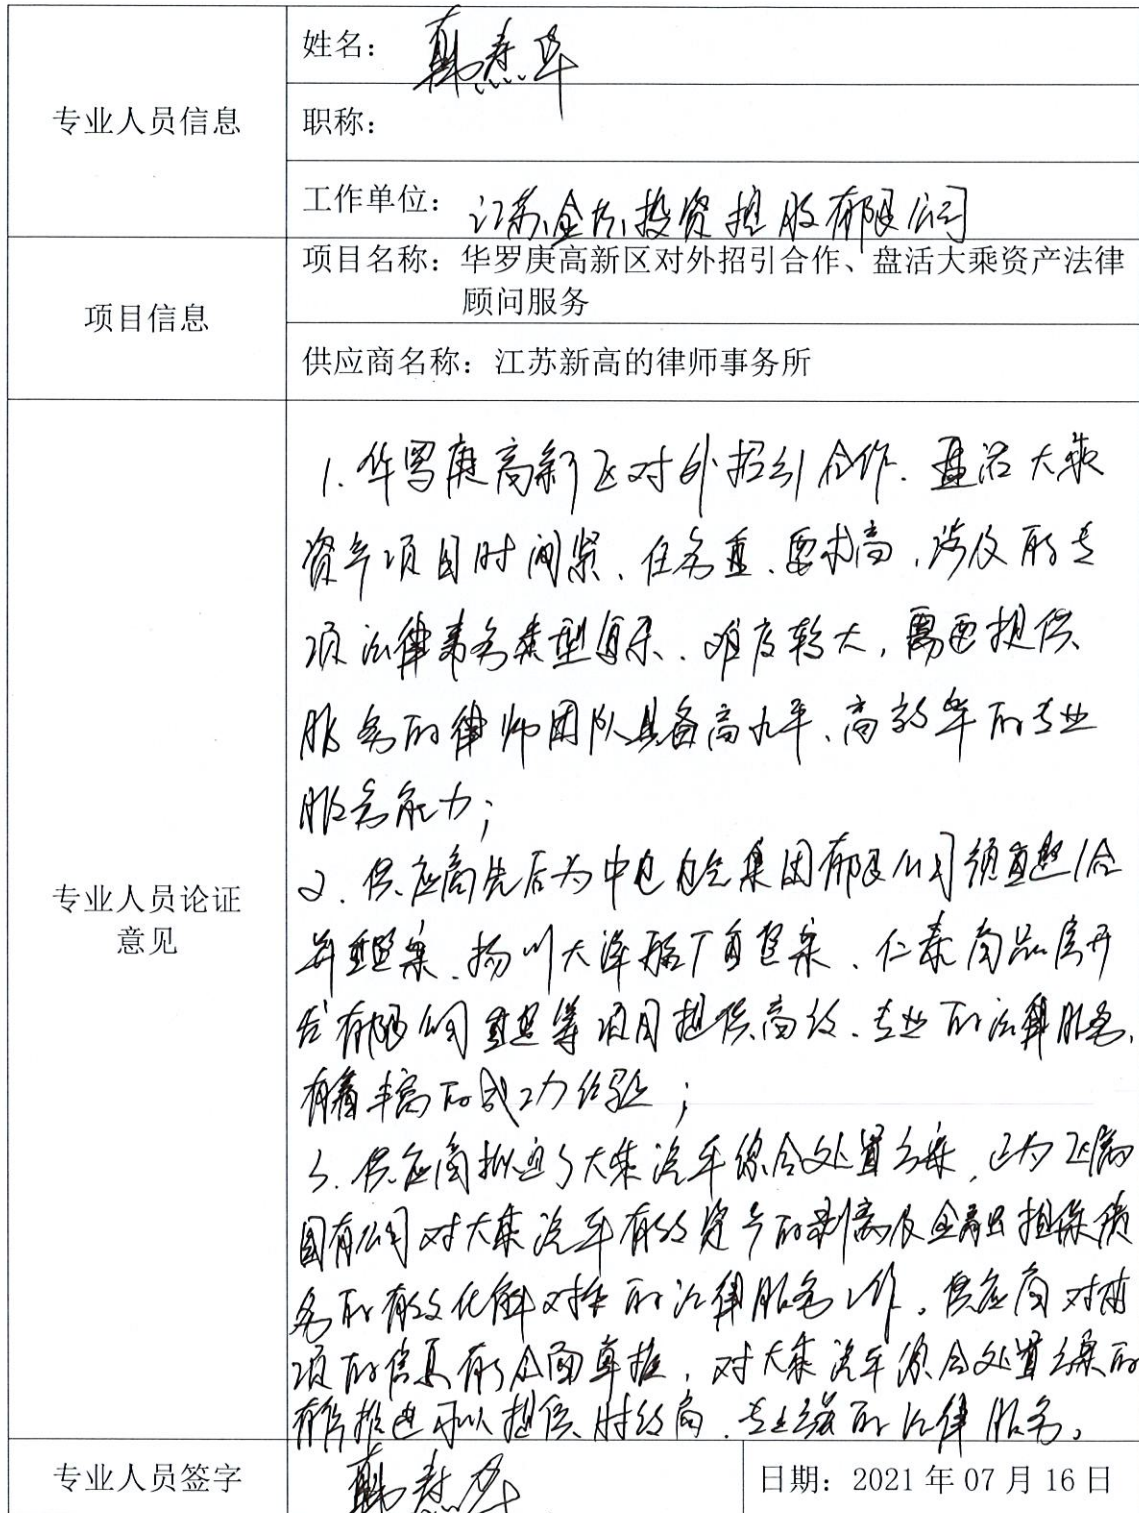 专业人员信息
姓名：
职称：
工作单位：江苏金东投资控股有限公司
项目信息
项目名称：华罗庚高新区对外招引合作、盘活大乘资产法律
顾问服务
供应商名称：江苏新高的律师事务所
专业人员论证
意见
1.华罗庚高新区对外招引合作、盘活大乘
资产项目时间紧、任务重、要求高，涉及的专
项法律事务类型复杂、难度较大，需要提供
服务的律师团队具备高水平、高效率的专业
服务能力；
2.供应商先后为中电电气集团有限公司
并重整案、扬州大洋船厂重整案、仁泰商品房开
发有限公司重整等项目提供高效、专业的法律服务，
有着丰富的成功经验；
3.供应商拟定了大乘汽车综合处置方案，已为
国有公司对大乘汽车有效资产的剥离及金融担保债
务的有效化解对接的法律服务工作。供应商对
项的信息有了全面掌握，对大乘汽车综合处置方案的
有序推进可以提供时效高、专业强的法律服务。
专业人员签字
日期：2021年07月16日